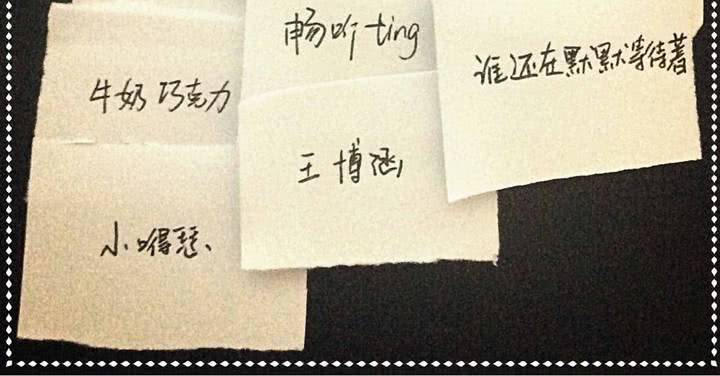 畅听ting
谁还在默默等待着
牛奶巧克力
王博涵
小嘚瑟、